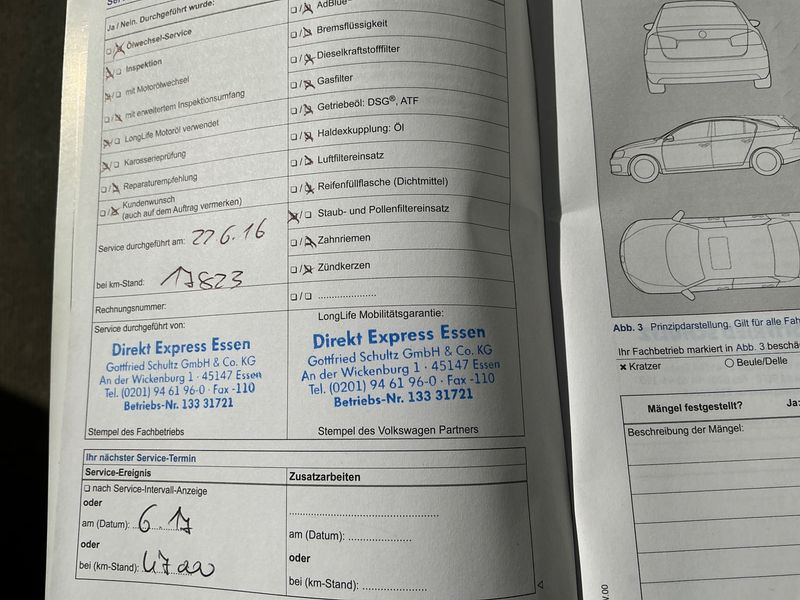 Ja / Nein. Durchgeführt wurde:
Ölwechsel-Service
Inspektion
mit Motorölwechsel
mit erweitertem Inspektionsumfang
LongLife Motoröl verwendet
Karosserieprüfung
Reparaturempfehlung
Kundenwunsch
(auch auf dem Auftrag vermerken)
Service durchgeführt am: 22.6.16
bei km-Stand: 17823
Rechnungsnummer:
Service durchgeführt von:
Direkt Express Essen
Gottfried Schultz GmbH & Co. KG
An der Wickenburg 1 · 45147 Essen
Tel. (0201) 94 61 96-0 · Fax -110
Betriebs-Nr. 133 31721
Stempel des Fachbetriebs
AdBlue®
Bremsflüssigkeit
Dieselkraftstofffilter
Gasfilter
Getriebeöl: DSG®, ATF
Haldexkupplung: Öl
Luftfiltereinsatz
Reifenfüllflasche (Dichtmittel)
Staub- und Pollenfiltereinsatz
Zahnriemen
Zündkerzen
LongLife Mobilitätsgarantie:
Direkt Express Essen
Gottfried Schultz GmbH & Co. KG
An der Wickenburg 1 · 45147 Essen
Tel. (0201) 94 61 96-0 · Fax -110
Betriebs-Nr. 133 31721
Stempel des Volkswagen Partners
Ihr nächster Service-Termin
Service-Ereignis
nach Service-Intervall-Anzeige
oder
am (Datum): 6.17
oder
bei (km-Stand):
Zusatzarbeiten
am (Datum):
oder
bei (km-Stand):
Abb. 3 Prinzipdarstellung. Gilt für alle Fah
Ihr Fachbetrieb markiert in Abb. 3 beschä
Kratzer
Beule/Delle
Mängel festgestellt? Ja:
Beschreibung der Mängel: